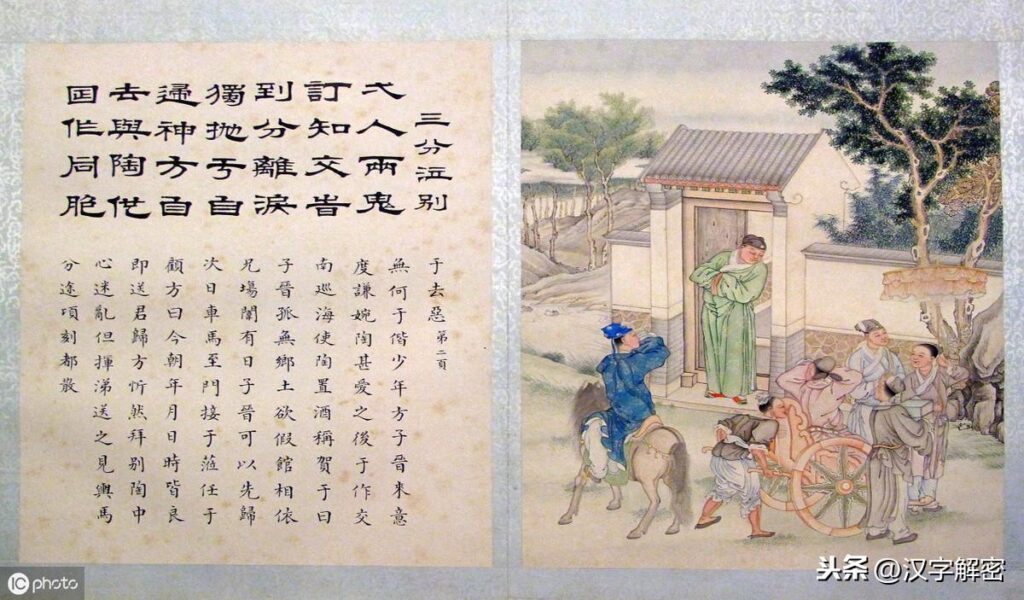 三分泣别
弌人兩鬼
訂知交旹
到分離淚
獨抛于自
通神方自
去與陶他
囘作同胞
于去惡第二頁
無何于偕少年方子晉來意
度謙婉陶甚愛之後于作交
南巡海使陶置酒稱賀于曰
子晉孤無鄉土欲假館相依
兄場闈有日子晉可以先歸
次日車馬至門接于蒞任于
顧方曰今朝年月日時皆良
即送君歸方忻然拜别陶中
心迷亂但揮涕送之見輿馬
分途頃刻都散
IC photo
头条 @汉字解密